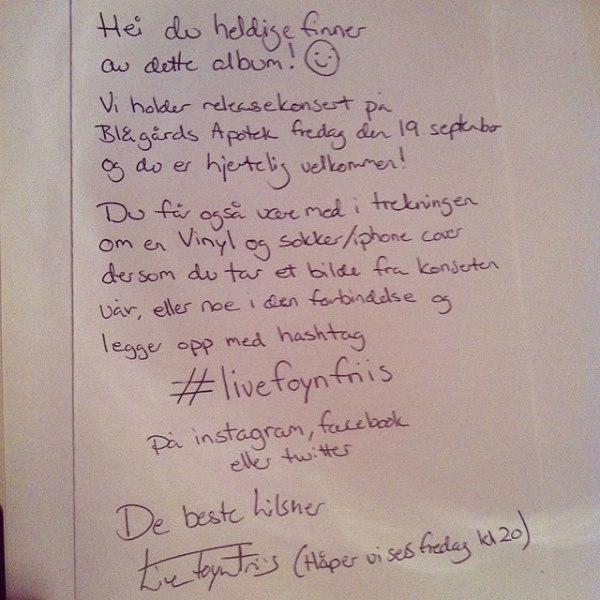 Hei du heldige finner
av dette album! ☺
Vi holder releasekonsert på
Blågårds Apotek fredag den 19. september
og du er hjertelig velkommen!
Du får også være med i trekningen
om en Vinyl og sokker/iphone cover
dersom du tar et bilde fra konserten
vår, eller noe i den forbindelse og
legger opp med hashtag
#livefoynfriis
på instagram, facebook
eller twitter
De beste hilsner
Live Foyn Friis (Håper vi sees fredag kl 20)